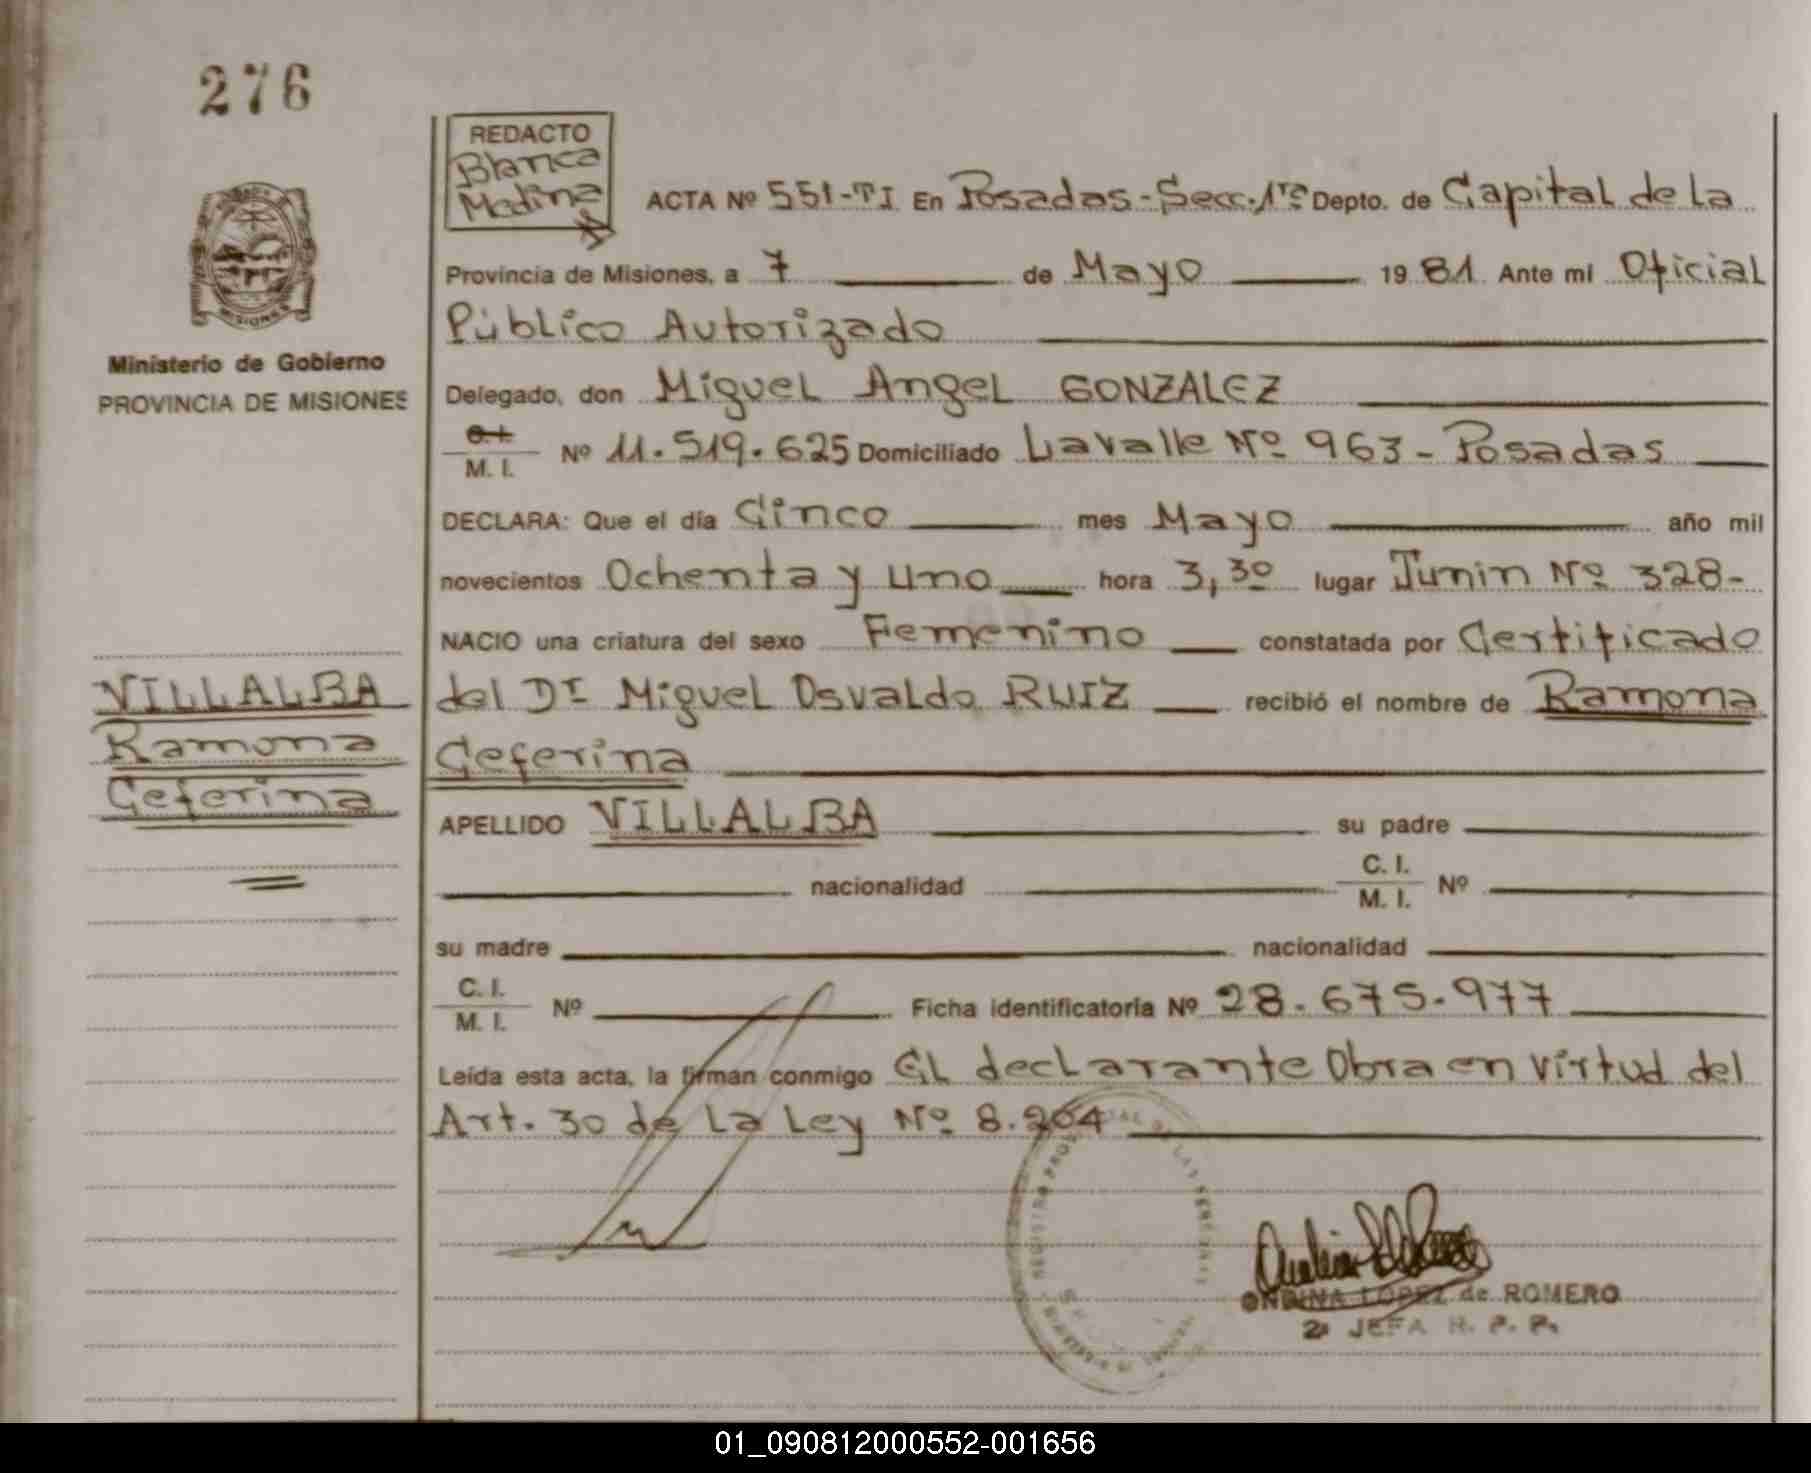 276
REDACTO
Blanca
Medina
ACTA Nº 551-TI En Posadas-Secc. 1ra Depto. de Capital de La
Provincia de Misiones, a 7 de Mayo 1981 Ante mí Oficial
Público Autorizado
MISIONES
Ministerio de Gobierno
PROVINCIA DE MISIONES
Delegado, don Miguel Angel GONZALEZ
C. I.
M. I. Nº 11.519.625 Domiciliado Lavalle Nº 963 - Posadas
DECLARA: Que el día Cinco mes Mayo año mil
novecientos Ochenta y Uno hora 3,30 lugar Junin Nº 328-
NACIO una criatura del sexo Femenino constatada por Certificado
del Dr Miguel Osvaldo RUIZ recibió el nombre de Ramona
Ceferina
VILLALBA
Ramona
Ceferina
APELLIDO VILLALBA su padre
nacionalidad C. I.
M. I. Nº
su madre nacionalidad
C. I.
M. I. Nº Ficha identificatoria Nº 28.675.977
Leída esta acta, la firman conmigo El declarante Obra en virtud del
Art. 30 de La Ley Nº 8.204
ONDINA LOPEZ de ROMERO
2ª JEFA R. P. P.
01_090812000552-001656